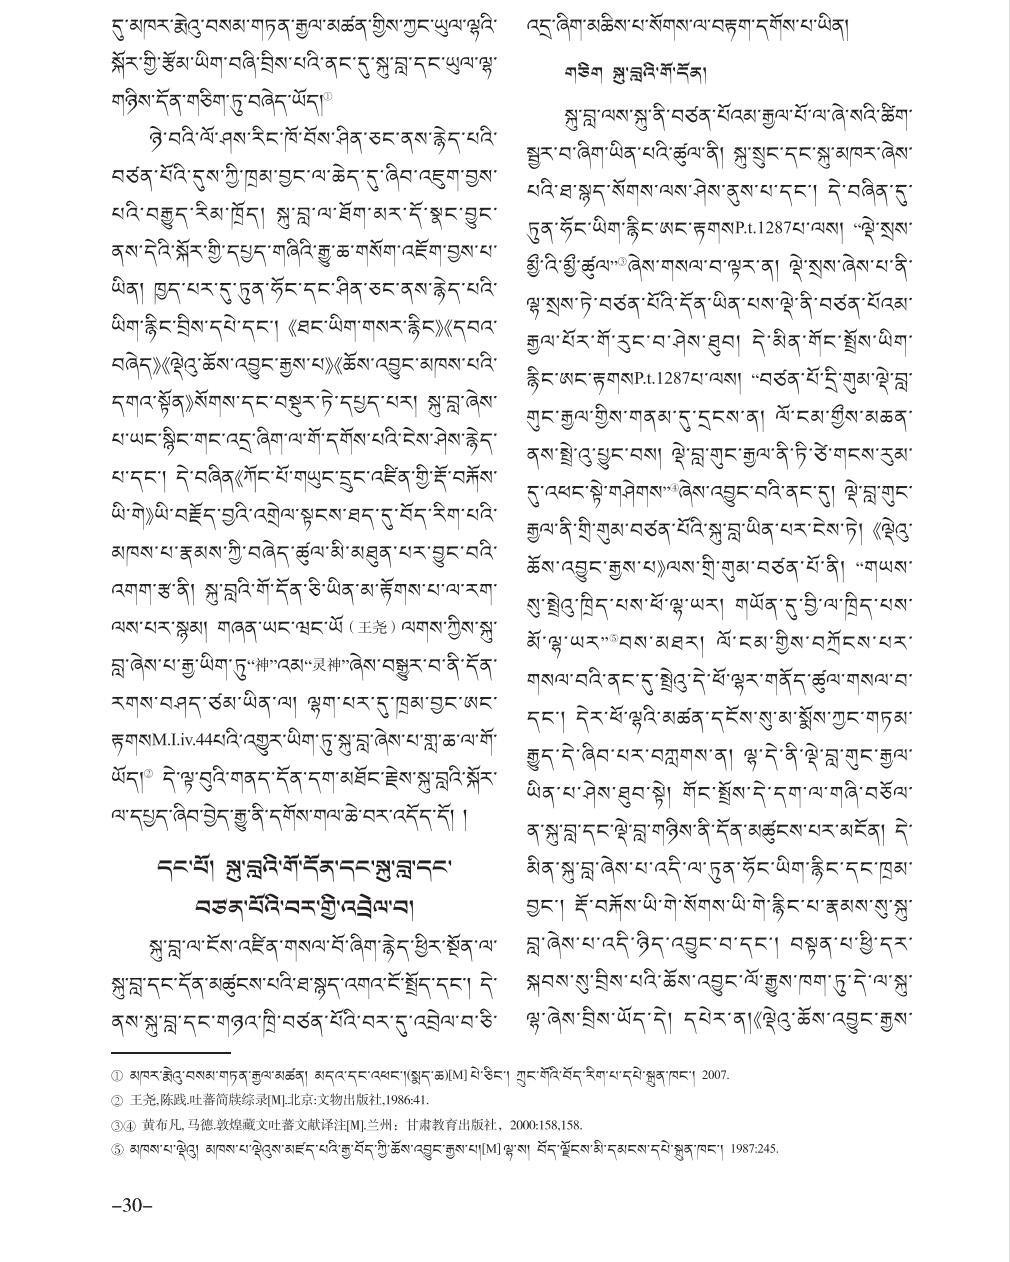 དུ་མཁར་རྨེའུ་བསམ་གཏན་རྒྱལ་མཚན་གྱིས་ཀྱང་ཡུལ་ལྷའི་
སྐོར་གྱི་རྩོམ་ཡིག་བཞི་བྲིས་པའི་ནང་དུ་སྐུ་བླ་དང་ཡུལ་ལྷ་
གཉིས་དོན་གཅིག་ཏུ་བཞེད་ཡོད།①
ཉེ་བའི་ལོ་ཤས་རིང་ཁོ་བོས་ཤིན་ཅང་ནས་རྙེད་པའི་
བཙན་པོའི་དུས་ཀྱི་ཁྲམ་བྱང་ལ་ཆེད་དུ་ཞིབ་འཇུག་བྱས་
པའི་བརྒྱུད་རིམ་ཁྲོད། སྐུ་བླ་ལ་ཐོག་མར་དོ་སྣང་བྱུང་
ནས་དེའི་སྐོར་གྱི་དཔྱད་གཞིའི་རྒྱུ་ཆ་གསོག་འཇོག་བྱས་པ་
ཡིན། ཁྱད་པར་དུ་ཏུན་ཧོང་དང་ཤིན་ཅང་ནས་རྙེད་པའི་
ཡིག་རྙིང་བྲིས་དཔེ་དང་། 《ཐང་ཡིག་གསར་རྙིང》《དབའ་
བཞེད》《ལྡེའུ་ཆོས་འབྱུང་རྒྱས་པ》《ཆོས་འབྱུང་མཁས་པའི་
དགའ་སྟོན》སོགས་དང་བསྡུར་ཏེ་དཔྱད་པར། སྐུ་བླ་ཞེས་
པ་ཡང་སྙིང་གང་འདྲ་ཞིག་ལ་གོ་དགོས་པའི་ངེས་ཤེས་རྙེད་
པ་དང་། དེ་བཞིན《ཀོང་པོ་གཡུང་དྲུང་འཛིན་གྱི་རྡོ་བརྐོས་
ཡི་གེ》ཡི་བརྗོད་བྱའི་འགྲེལ་སྟངས་ཐད་དུ་བོད་རིག་པའི་
མཁས་པ་རྣམས་ཀྱི་བཞེད་ཚུལ་མི་མཐུན་པར་བྱུང་བའི་
འགག་རྩ་ནི། སྐུ་བླའི་གོ་དོན་ཅི་ཡིན་མ་རྟོགས་པ་ལ་རག་
ལས་པར་སྙམ། གཞན་ཡང་ཝང་ཡོ（王尧）ལགས་ཀྱིས་སྐུ་
བླ་ཞེས་པ་རྒྱ་ཡིག་ཏུ“神”འམ“灵神”ཞེས་བསྒྱུར་བ་ནི་དོན་
རགས་བཤད་ཙམ་ཡིན་ལ། ལྷག་པར་དུ་ཁྲམ་བྱང་ཨང་
རྟགསM.I.iv.44པའི་འགྱུར་ཡིག་ཏུ་སྐུ་བླ་ཞེས་པ་གླ་ཆ་ལ་གོ་
ཡོད།② དེ་ལྟ་བུའི་གནད་དོན་དག་མཐོང་རྗེས་སྐུ་བླའི་སྐོར་
ལ་དཔྱད་ཞིབ་བྱེད་རྒྱུ་ནི་དགོས་གལ་ཆེ་བར་འདོད་དོ། །
དང་པོ། སྐུ་བླའི་གོ་དོན་དང་སྐུ་བླ་དང་
བཙན་པོའི་བར་གྱི་འབྲེལ་བ།
སྐུ་བླ་ལ་ངོས་འཛིན་གསལ་བོ་ཞིག་རྙེད་ཕྱིར་སྔོན་ལ་
སྐུ་བླ་དང་དོན་མཚུངས་པའི་ཐ་སྙད་འགའ་ངོ་སྤྲོད་དང་། དེ་
ནས་སྐུ་བླ་དང་གཉའ་ཁྲི་བཙན་པོའི་བར་དུ་འབྲེལ་བ་ཅི་
འདྲ་ཞིག་མཆིས་པ་སོགས་ལ་བརྟག་དགོས་པ་ཡིན།
གཅིག སྐུ་བླའི་གོ་དོན།
སྐུ་བླ་ལས་སྐུ་ནི་བཙན་པོའམ་རྒྱལ་པོ་ལ་ཞེ་སའི་ཚིག་
སྦྱར་བ་ཞིག་ཡིན་པའི་ཚུལ་ནི། སྐུ་སྲུང་དང་སྐུ་མཁར་ཞེས་
པའི་ཐ་སྙད་སོགས་ལས་ཤེས་ནུས་པ་དང་། དེ་བཞིན་དུ་
ཏུན་ཧོང་ཡིག་རྙིང་ཨང་རྟགསP.t.1287པ་ལས། “ལྡེ་སྲས་
མྱི་འི་མྱི་ཚུལ”③ཞེས་གསལ་བ་ལྟར་ན། ལྡེ་སྲས་ཞེས་པ་ནི་
ལྷ་སྲས་ཏེ་བཙན་པོའི་དོན་ཡིན་པས་ལྡེ་ནི་བཙན་པོའམ་
རྒྱལ་པོར་གོ་རུང་བ་ཤེས་ཐུབ། དེ་མིན་གོང་སྤྲོས་ཡིག་
རྙིང་ཨང་རྟགསP.t.1287པ་ལས། “བཙན་པོ་དྲི་གུམ་ལྡེ་བླ་
གུང་རྒྱལ་གྱིས་གནམ་དུ་དྲངས་ན། ལོ་ངམ་གྱིས་མཆན་
ནས་སྤྲེ་འུ་ཕྱུང་བས། ལྡེ་བླ་གུང་རྒྱལ་ནི་ཏི་ཙེ་གངས་རུམ་
དུ་འཕང་སྟེ་གཤེགས”④ཞེས་འབྱུང་བའི་ནང་དུ། ལྡེ་བླ་གུང་
རྒྱལ་ནི་གྲི་གུམ་བཙན་པོའི་སྐུ་བླ་ཡིན་པར་ངེས་ཏེ། 《ལྡེའུ་
ཆོས་འབྱུང་རྒྱས་པ》ལས་གྲི་གུམ་བཙན་པོ་ནི། “གཡས་
སུ་སྤྲེའུ་ཁྲིད་པས་ཕོ་ལྷ་ཡར། གཡོན་དུ་བྱི་ལ་ཁྲིད་པས་
མོ་ལྷ་ཡར”⑤བས་མཐར། ལོ་ངམ་གྱིས་བཀྲོངས་པར་
གསལ་བའི་ནང་དུ་སྤྲེའུ་དེ་ཕོ་ལྷར་གནོད་ཚུལ་གསལ་བ་
དང་། དེར་ཕོ་ལྷའི་མཚན་དངོས་སུ་མ་སྨོས་ཀྱང་གཏམ་
རྒྱུད་དེ་ཞིབ་པར་བཀླགས་ན། ལྷ་དེ་ནི་ལྡེ་བླ་གུང་རྒྱལ་
ཡིན་པ་ཤེས་ཐུབ་སྟེ། གོང་སྤྲོས་དེ་དག་ལ་གཞི་བཅོལ་
ན་སྐུ་བླ་དང་ལྡེ་བླ་གཉིས་ནི་དོན་མཚུངས་པར་མངོན། དེ་
མིན་སྐུ་བླ་ཞེས་པ་འདི་ལ་ཏུན་ཧོང་ཡིག་རྙིང་དང་ཁྲམ་
བྱང་། རྡོ་བརྐོས་ཡི་གེ་སོགས་ཡི་གེ་རྙིང་པ་རྣམས་སུ་སྐུ་
བླ་ཞེས་པ་འདི་ཉིད་འབྱུང་བ་དང་། བསྟན་པ་ཕྱི་དར་
སྐབས་སུ་བྲིས་པའི་ཆོས་འབྱུང་ལོ་རྒྱུས་ཁག་ཏུ་དེ་ལ་སྐུ་
ལྷ་ཞེས་བྲིས་ཡོད་དེ། དཔེར་ན།《ལྡེའུ་ཆོས་འབྱུང་རྒྱས་
① མཁར་རྨེའུ་བསམ་གཏན་རྒྱལ་མཚན། མདའ་དང་འཕང་།(སྨད་ཆ)[M] པེ་ཅིང་། ཀྲུང་གོའི་བོད་རིག་པ་དཔེ་སྐྲུན་ཁང་། 2007.
② 王尧,陈践.吐蕃简牍综录[M].北京:文物出版社,1986:41.
③④ 黄布凡, 马德.敦煌藏文吐蕃文献译注[M].兰州：甘肃教育出版社，2000:158,158.
⑤ མཁས་པ་ལྡེའུ། མཁས་པ་ལྡེའུས་མཛད་པའི་རྒྱ་བོད་ཀྱི་ཆོས་འབྱུང་རྒྱས་པ།[M] ལྷ་ས། བོད་ལྗོངས་མི་དམངས་དཔེ་སྐྲུན་ཁང་། 1987:245.
–30–